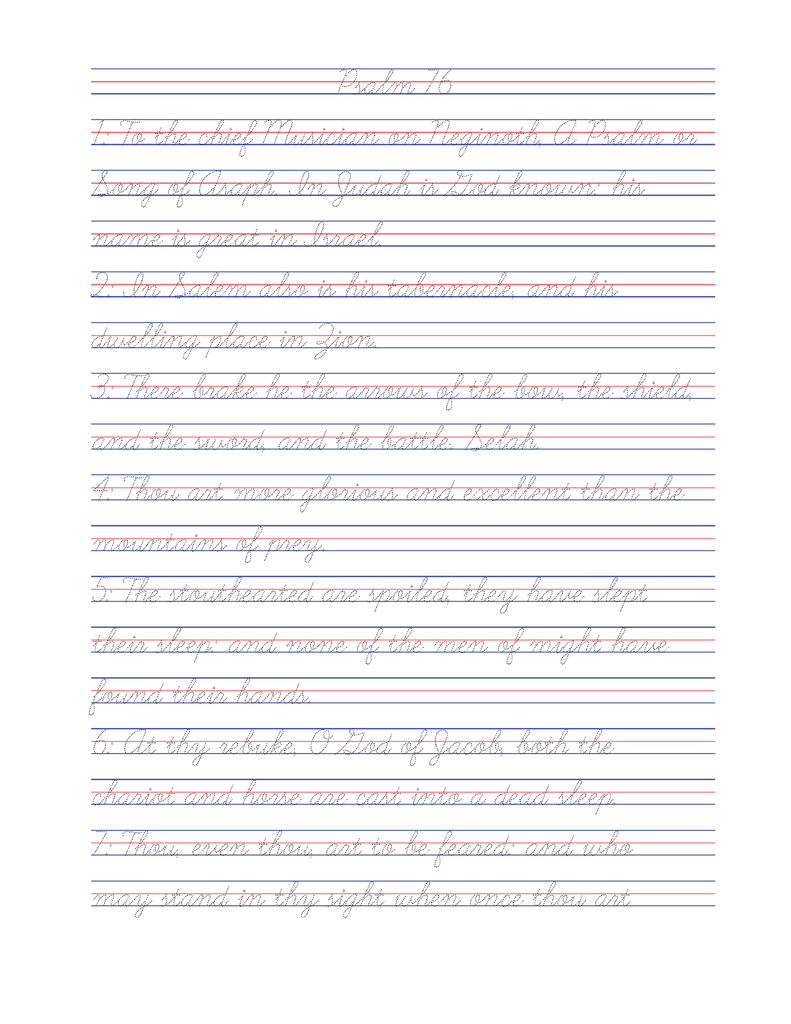 Psalm 76
1: To the chief Musician on Neginoth, A Psalm or
Song of Asaph. In Judah is God known: his
name is great in Israel.
2: In Salem also is his tabernacle, and his
dwelling place in Zion.
3: There brake he the arrows of the bow, the shield,
and the sword, and the battle. Selah.
4: Thou art more glorious and excellent than the
mountains of prey.
5: The stouthearted are spoiled, they have slept
their sleep: and none of the men of might have
found their hands.
6: At thy rebuke, O God of Jacob, both the
chariot and horse are cast into a dead sleep.
7: Thou, even thou, art to be feared: and who
may stand in thy sight when once thou art